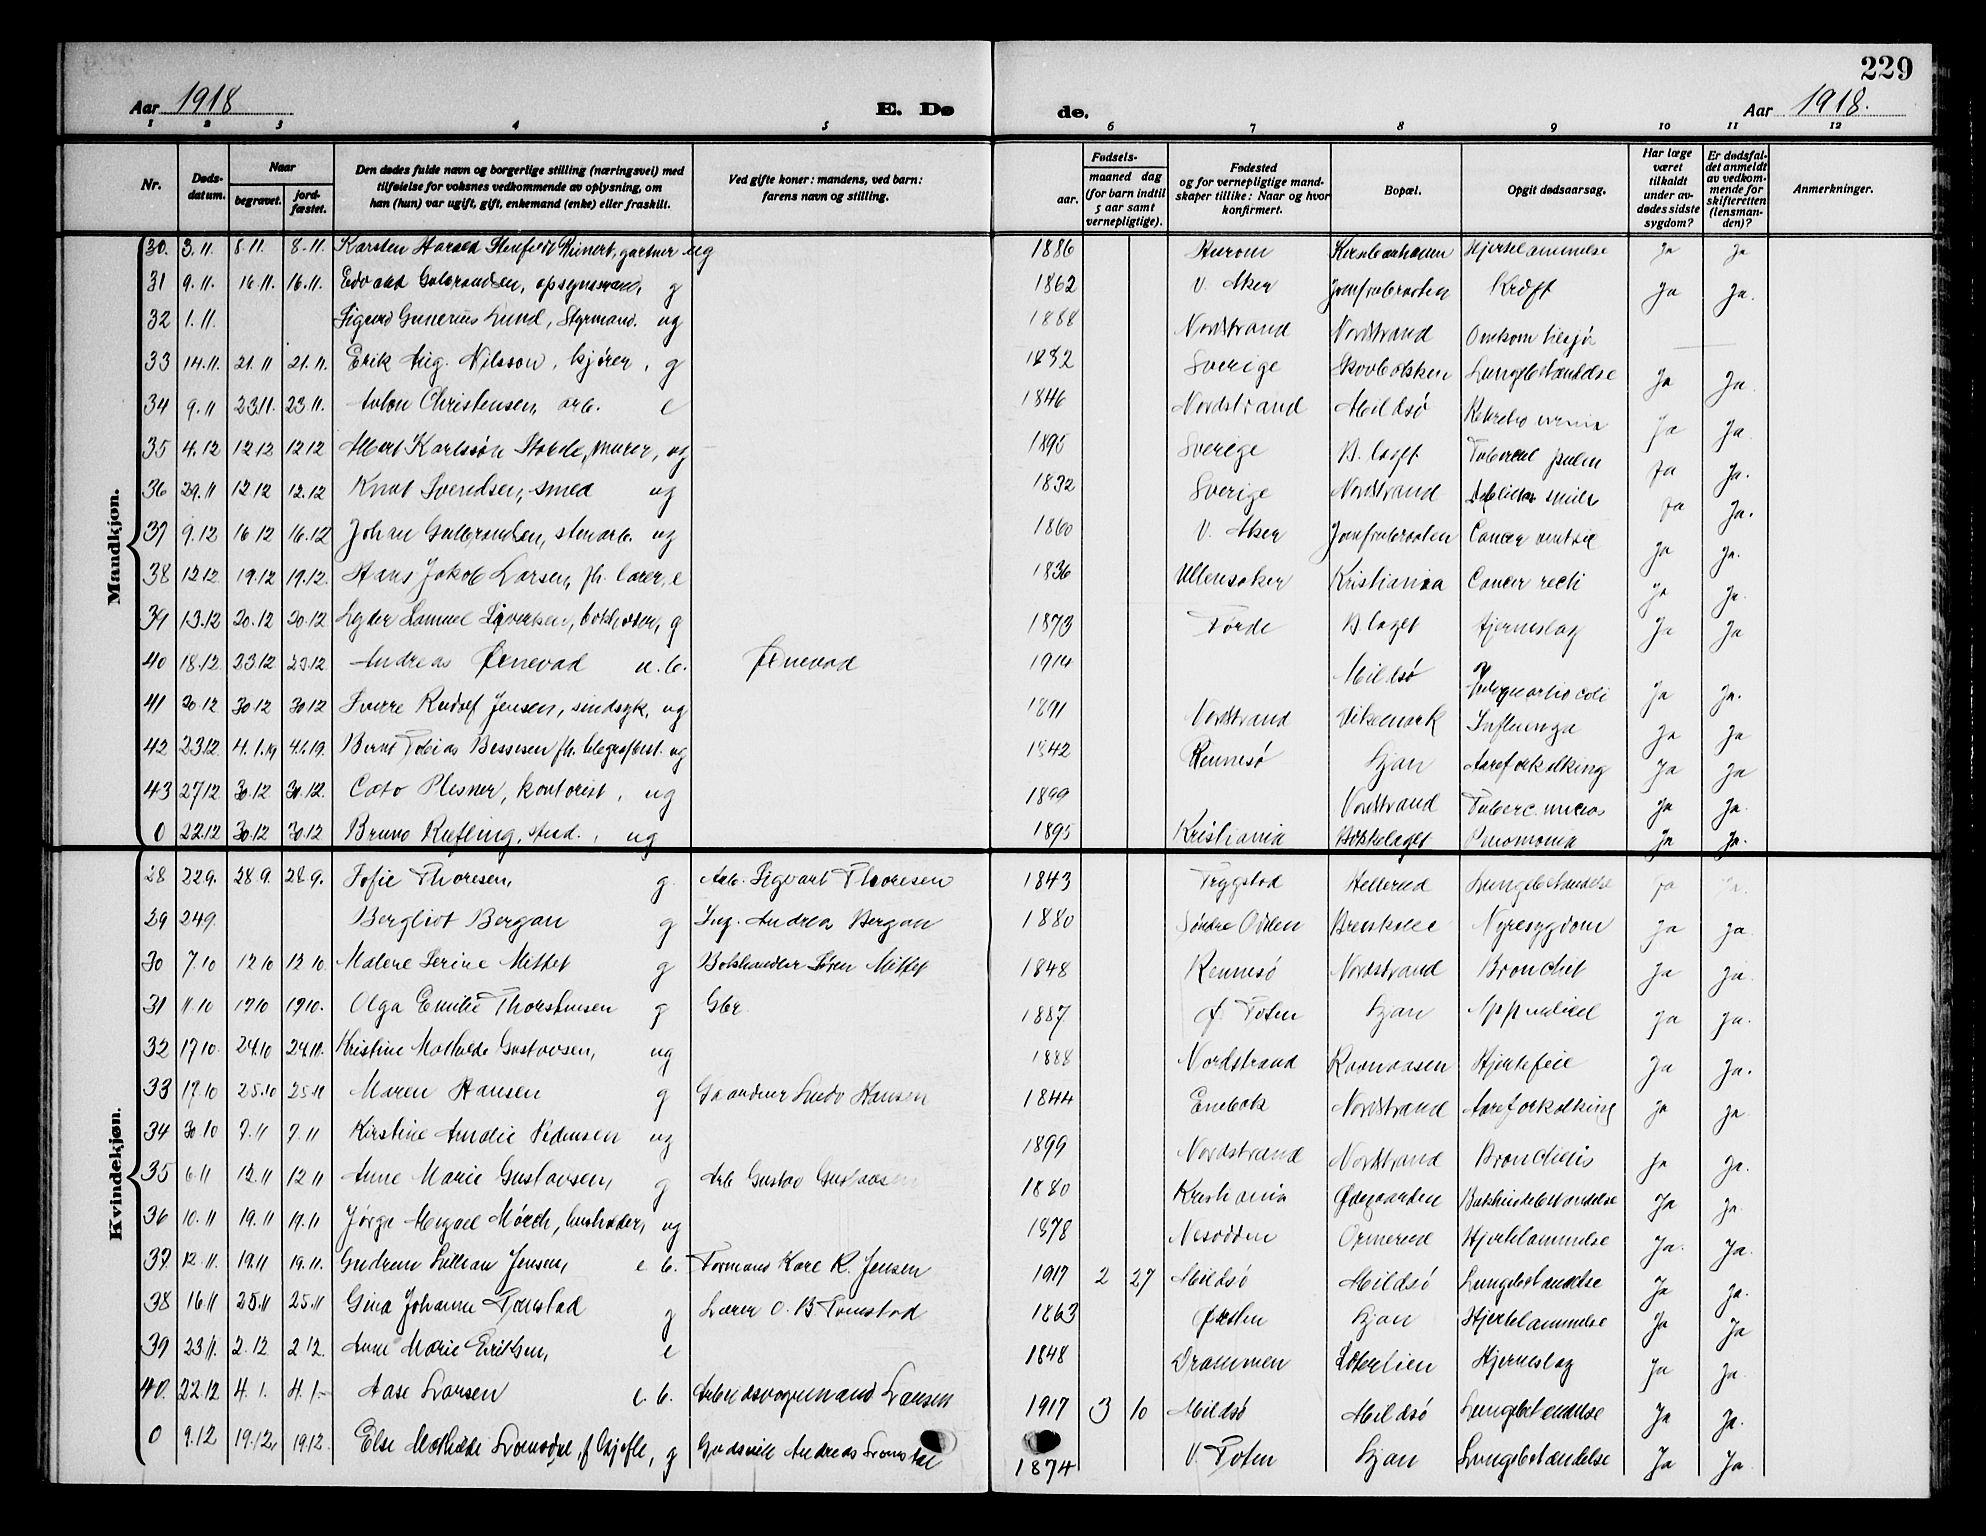 229
Aar 1918 E. Dø de. Aar 1918.
1 2 3 4 5 6 7 8 9 10 11 12
Nr. Døds-datum. Naar begravet. jord-fæstet. Den dødes fulde navn og borgerlige stilling (næringsvei) med tilføielse for voksnes vedkommende av oplysning, om han (hun) var ugift, gift, enkemand (enke) eller fraskilt. Ved gifte koner: mandens, ved barn: farens navn og stilling. Fødsels- aar. maaned dag (for barn indtil 5 aar samt vernepligtige). Fødested og for vernepligtige mandskaper tillike: Naar og hvor konfirmert. Bopæl. Opgit dødsaarsag. Har læge været tilkaldt under avdødes sidste sygdom? Er dødsfaldet anmeldt av vedkommende for skifteretten (lensmanden)? Anmerkninger.
Mandkjøn.
30. 3.11. 8.11. 8.11. Karsten Harald Reinert, gartner ug 1886 Hurum Hjertelammelse Ja Ja
31 9.11. 16.11. 16.11. Edvald Gulbrandsen, opsynsmand, g 1862 V. Aker Jomfrubraaten Kræft Ja Ja.
32 1.11. Sigurd Gunerius Lund, Styrmand. ug 1888 Nordstrand Nordstrand Omkom tilsjø
33 14.11. 21.11 21.11. Erik Aug. Nilsson, kjører, g 1832 Sverige Lungebetændelse Ja Ja.
34 9.11 23.11. 23.11. Anton Christensen, arb. e 1846 Nordstrand Mildsø Ja Ja
35 4.12 12.12 12.12 Albert Karlssøn murer, ug 1895 Sverige B. laget Tubercul pulm Ja Ja.
36 29.11 12.12 12.12 Knut Svendsen, smed ug 1832 Sverige Nordstrand Ja Ja.
37 9.12 16.12 16.12 Johan Gulbrandsen, stenarb. ug 1860 V. Aker Jomfrubraaten Cancer ventric Ja Ja.
38 12.12 19.12 19.12. Hans Jakob Larsen, fh. lærer, e 1836 Ullensaker Kristiania Cancer recti Ja Ja.
39 13.12 20.12 20.12 Lyder Samuel Sivertsen, g 1873 Førde B. laget Hjerneslag Ja Ja
40 18.12 23.12 23.12 Andreas Ønevad u.b. Ønevad 1914 Mildsø Ja Ja.
41 20.12 30.12 30.12 Sverre Rudolf Jensen, sindsyk, ug 1891 Nordstrand Vikemark Influenza Ja Ja
42 23.12 4.1.19 4.1.19. Bernt Tobias Bessesen fh. telegrafbest. ug 1842 Rennesø Ljan Aareforkalkning Ja Ja
43 27.12 30.12 30.12. Cato Plesner, kontorist, ug 1899 Nordstrand Ja Ja.
0 22.12 30.12 30.12 Bruno Riefling, stud., ug 1895 Kristiania Bækkelaget Pneumonia Ja Ja.
Kvindekjøn.
28 22.9. 28.9. 28.9. Sofie Thoresen, g. Arb. Sigvart Thoresen 1843 Trygstad Hellerud Lungebetændelse Ja Ja.
29 24.9. Bergliot Bergan g Ing. Andreas Bergan 1880 Søndre Odalen Nyresygdom Ja Ja
30 7.10 12.10 12.10. Malene Serine Mittet g Bokhandler Søren Mittet 1848 Rennesø Nordstrand Bronchit Ja Ja.
31 11.10 17.10 17.10. Olga Emilie Thorstensen g Gbr. 1887 Ø. Toten Ljan Appendicit Ja Ja.
32 17.10. 24.10 24.11. Kristine Mathilde Gustavsen, ug 1888 Nordstrand Ravnaasen Hjertefeil Ja Ja.
33 17.10 25.10 25.11 Maren Hansen g Gaardeier Ludv Hansen 1844 Enebak Nordstrand Aareforkalkning Ja Ja
34 30.10 7.11 7.11 Kirstine Amalie Pedersen ug 1899 Nordstrand Nordstrand Bronchitis Ja Ja.
35 6.11 12.11 12.11 Anne Marie Gustavsen, g Arb Gustav Gustavsen 1880 Kristiania Ødegaarden Ja Ja.
36 10.11 19.11 19.11 Mørch, husholder, ug 1878 Nesodden Ormerud Hjertelammelse Ja. Ja.
37. 12.11. 19.11 19.11. Gudrun Lillian Jensen, e b. Formand Kare R. Jensen 1917 2 27 Mildsø Mildsø Lungebetændelse Ja Ja.
38 16.11 25.11 25.11 Gina Johanne Tomstad g Lærer O. B. Tomstad 1863 Ljan Hjertelammelse Ja Ja
39 23.11. 2.12 2.12. Anne Marie Eriksen, e 1848 Drammen Hjerneslag Ja Ja.
40. 22.12 4.1. 4.1.- Aase Larsen e. b. Larsen 1917 3 10 Mildsø Mildsø Lungebetændelse Ja Ja.
0 9.12 19.12. 19.12. Else Mathilde g Andreas 1874 V. Toten Ljan Lungebetændelse Ja Ja.